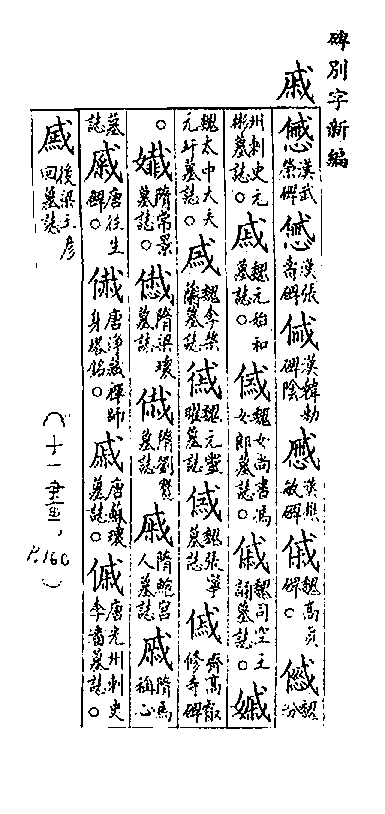 碑別字新編
戚
慼漢武榮碑慼漢張壽碑傶漢韓勑碑陰慼漢樊敏碑傶魏高貞碑。魏汾
州刺史元彬墓誌。戚魏元始和墓誌。傶魏女尚書馮女郎墓誌。傶魏司空王誦墓誌。
魏太中大夫元玕墓誌。戚魏李蕤蘭墓誌魏元靈曜墓誌傶魏張寧墓誌傶齊高叡修寺碑
。隋常景墓誌。隋梁瓌墓誌隋劉賓墓誌戚隋鮑宮人墓誌戚隋馬稱心
墓誌戚唐往生碑。唐淨藏禪師身塔銘。戚唐蘇瓌墓誌。傶唐光州刺史李潘墓誌。
戚後梁王彥回墓誌
(十一畫,
P.160)